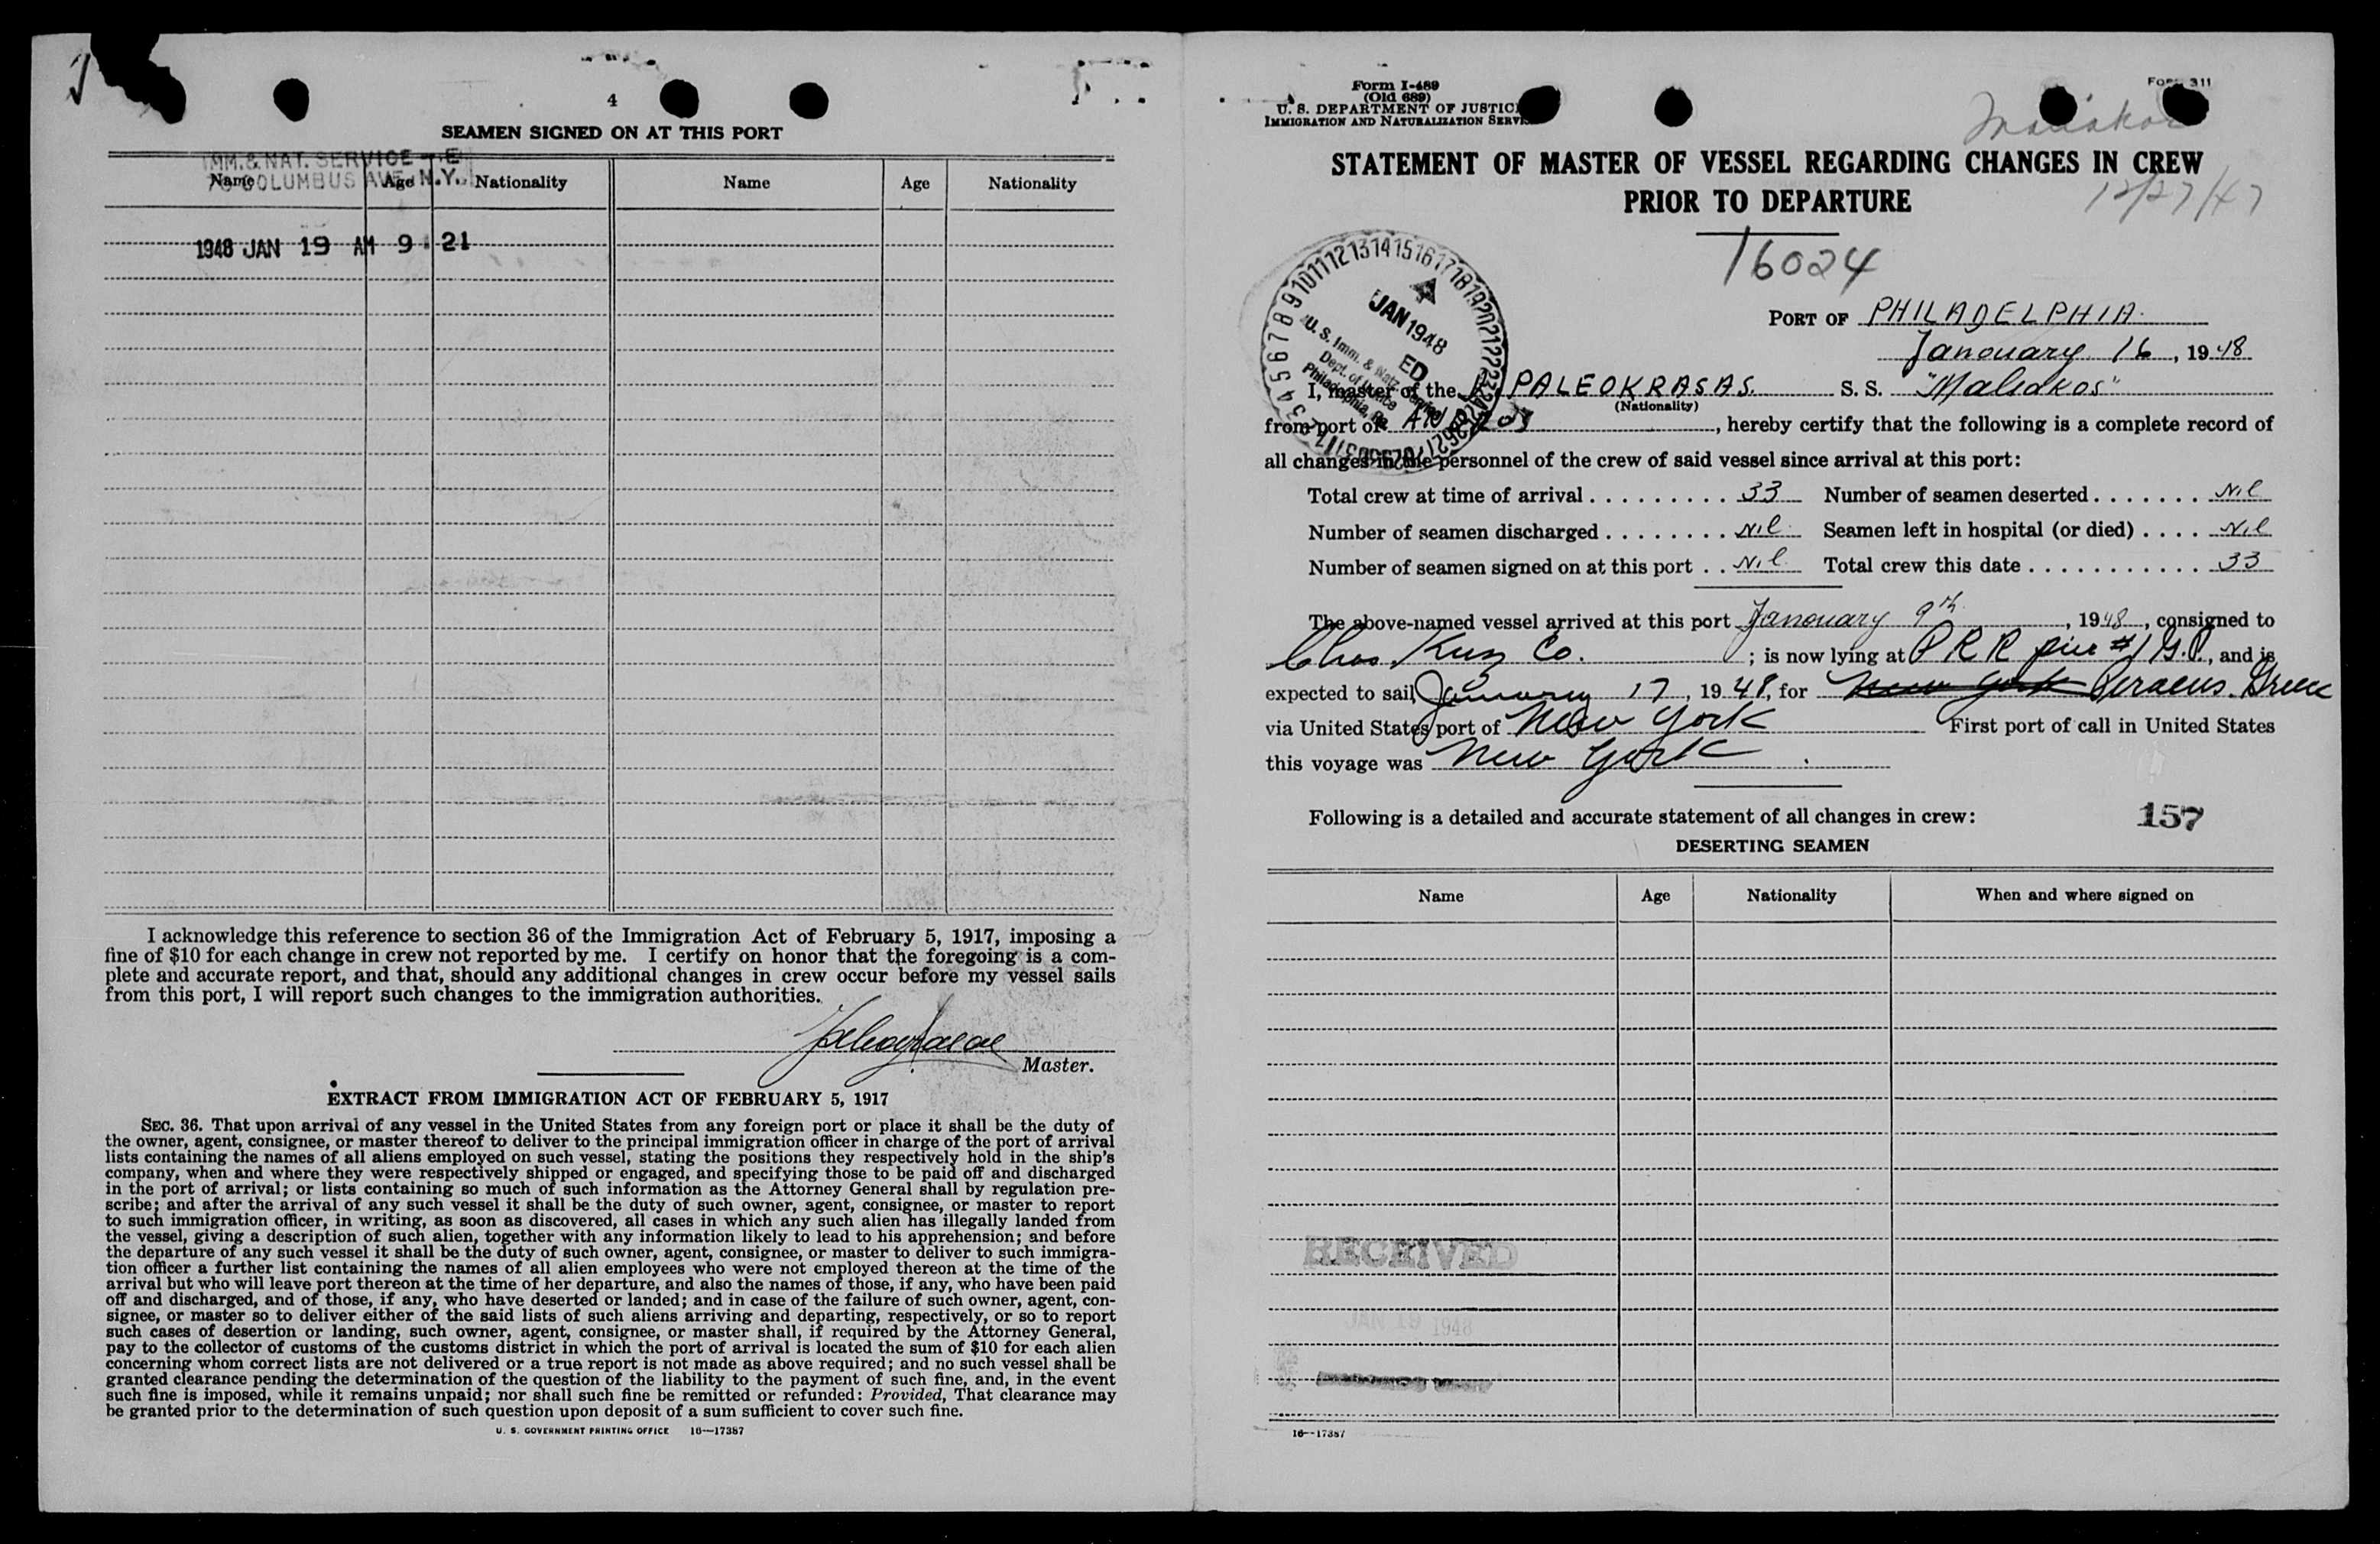 4
SEAMEN SIGNED ON AT THIS PORT
IMM. & NAT. SERVICE
COLUMBUS AVE. N.Y.
Name Age Nationality Name Age Nationality
1948 JAN 19 AM 9:21
I acknowledge this reference to section 36 of the Immigration Act of February 5, 1917, imposing a
fine of $10 for each change in crew not reported by me. I certify on honor that the foregoing is a com-
plete and accurate report, and that, should any additional changes in crew occur before my vessel sails
from this port, I will report such changes to the immigration authorities.
Master.
EXTRACT FROM IMMIGRATION ACT OF FEBRUARY 5, 1917
SEC. 36. That upon arrival of any vessel in the United States from any foreign port or place it shall be the duty of
the owner, agent, consignee, or master thereof to deliver to the principal immigration officer in charge of the port of arrival
lists containing the names of all aliens employed on such vessel, stating the positions they respectively hold in the ship's
company, when and where they were respectively shipped or engaged, and specifying those to be paid off and discharged
in the port of arrival; or lists containing so much of such information as the Attorney General shall by regulation pre-
scribe; and after the arrival of any such vessel it shall be the duty of such owner, agent, consignee, or master to report
to such immigration officer, in writing, as soon as discovered, all cases in which any such alien has illegally landed from
the vessel, giving a description of such alien, together with any information likely to lead to his apprehension; and before
the departure of any such vessel it shall be the duty of such owner, agent, consignee, or master to deliver to such immigra-
tion officer a further list containing the names of all alien employees who were not employed thereon at the time of the
arrival but who will leave port thereon at the time of her departure, and also the names of those, if any, who have been paid
off and discharged, and of those, if any, who have deserted or landed; and in case of the failure of such owner, agent, con-
signee, or master so to deliver either of the said lists of such aliens arriving and departing, respectively, or so to report
such cases of desertion or landing, such owner, agent, consignee, or master shall, if required by the Attorney General,
pay to the collector of customs of the customs district in which the port of arrival is located the sum of $10 for each alien
concerning whom correct lists are not delivered or a true report is not made as above required; and no such vessel shall be
granted clearance pending the determination of the question of the liability to the payment of such fine, and, in the event
such fine is imposed, while it remains unpaid; nor shall such fine be remitted or refunded: Provided, That clearance may
be granted prior to the determination of such question upon deposit of a sum sufficient to cover such fine.
U. S. GOVERNMENT PRINTING OFFICE 16—17387
Form I-489
(Old 689)
U. S. DEPARTMENT OF JUSTIC
IMMIGRATION AND NATURALIZATION SERV
311
Maliakos
STATEMENT OF MASTER OF VESSEL REGARDING CHANGES IN CREW
PRIOR TO DEPARTURE
12/27/47
16024
PORT OF PHILADELPHIA.
Janouary 16, 1948
JAN 1948
U. S. Imm. & Natz. Service
Dept. of Justice
Philadelphia, Pa.
I, master of the PALEOKRASAS. S. S. "Maliakos"
(Nationality)
from port of, hereby certify that the following is a complete record of
all changes in the personnel of the crew of said vessel since arrival at this port:
Total crew at time of arrival . . . . . . . . . 33 Number of seamen deserted . . . . . . . Nil
Number of seamen discharged . . . . . . . . Nil Seamen left in hospital (or died) . . . . Nil
Number of seamen signed on at this port . . Nil Total crew this date . . . . . . . . . . . . 33
The above-named vessel arrived at this port Janouary 9th, 1948, consigned to
Chas Kurz Co. ; is now lying at P R R pier #1 G.P., and is
expected to sail January 17, 1948, for New York Piraeus. Greece
via United States port of New York First port of call in United States
this voyage was New York.
Following is a detailed and accurate statement of all changes in crew: 157
DESERTING SEAMEN
Name Age Nationality When and where signed on
RECEIVED
JAN 19 1948
16—17387